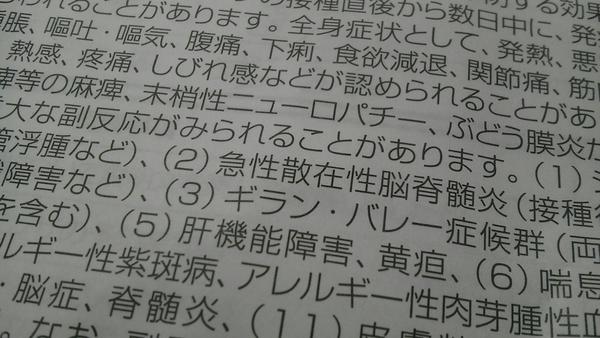 われることがあります。
接種直後から数日中に、発
することがあります。全身症状として、発熱、悪
脹、嘔吐・嘔気、腹痛、下痢、食欲減退、関節痛、筋
熱感、疼痛、しびれ感などが認められることがあ
等の麻痺、末梢性ニューロパチー、ぶどう膜炎が
大な副反応がみられることがあります。(1)シ
管浮腫など)、(2)急性散在性脳脊髄炎(接種後
障害など)、(3)ギラン・バレー症候群(両
を含む)、(5)肝機能障害、黄疸、(6)喘息
ルギー性紫斑病、アレルギー性肉芽腫性血
・脳症、脊髄炎、(11)皮膚
。なお、副